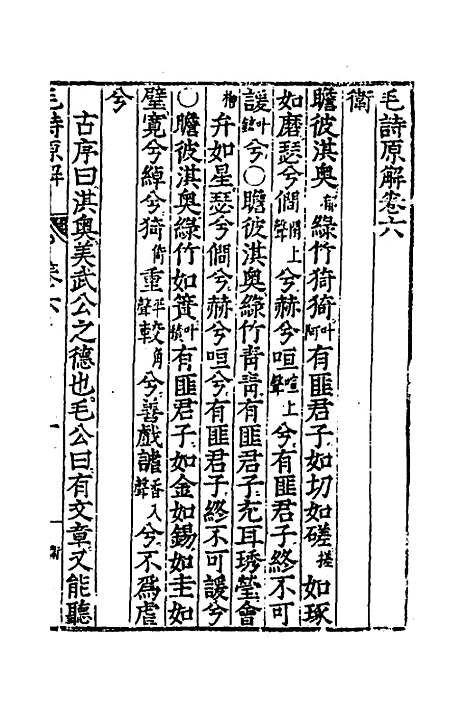 毛詩原解卷六
衛
瞻彼淇奧郁綠竹猗猗叶阿有匪君子如切如磋搓如琢
如磨瑟兮僩閒上聲兮赫兮咺喧上聲兮有匪君子終不可
諼叶喧兮○瞻彼淇奧綠竹青青有匪君子充耳琇瑩會
檜弁如星瑟兮僩兮赫兮咺兮有匪君子終不可諼兮
○瞻彼淇奧綠竹如簀叶績有匪君子如金如錫如圭如
璧寬兮綽兮猗倚重平聲較角兮善戲謔香入聲兮不為虐
兮
古序曰淇奧美武公之德也毛公曰有文章又能聽
毛詩原解 卷六 一 衛